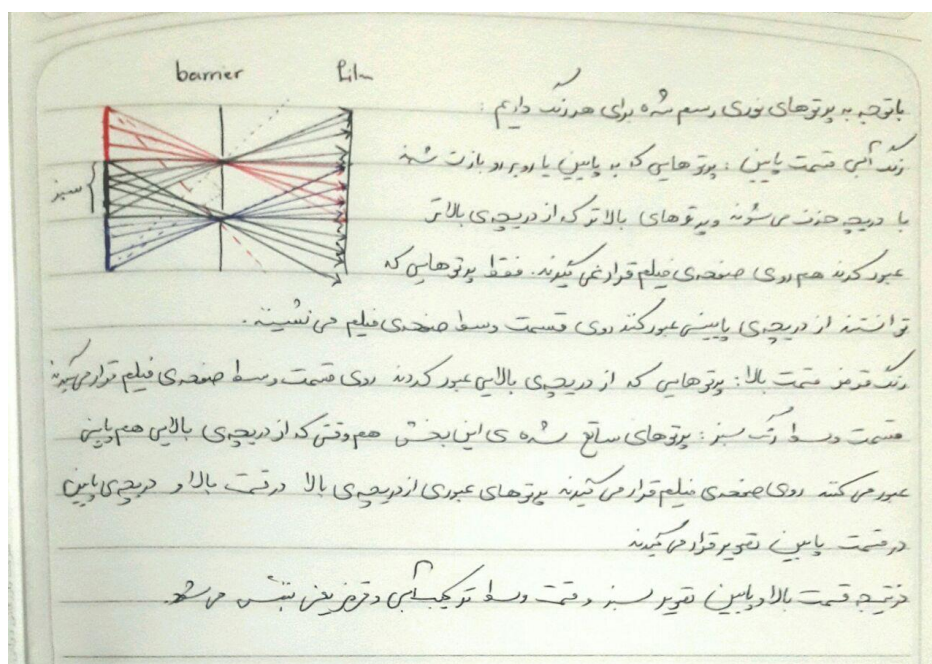 barrier
film
سبز
باتوجه به پرتوهای نوری رسم شده برای هر رنگ داریم :
رنگ آبی قسمت پایین : پرتوهایی که به پایین یا روبرو بازت شدند
با دریچه حذف می شوند و پرتوهای بالاتر که از دریچه ی بالاتر
عبور کردند هم روی صفحه ی فیلم قرار نمی گیرند. فقط پرتوهایی که
توانستند از دریچه ی پایینی عبور کند روی قسمت وسط صفحه ی فیلم می نشینند.
رنگ قرمز قسمت بالا : پرتوهایی که از دریچه ی بالایی عبور کردند روی قسمت وسط صفحه ی فیلم قرار می گیرند
قسمت وسط رنگ سبز : پرتوهای ساتع شده ی این بخش هم وقتی که از دریچه ی بالایی هم پایینی
عبور می کنند روی صفحه ی فیلم قرار می گیرند پرتوهای عبوری از دریچه ی بالا در قسمت بالا و دریچه ی پایین
در قسمت پایین تصویر قرار می گیرند
در نتیجه قسمت بالا و پایین تصویر سبز و قسمت وسط ترکیب آبی و قرمز یعنی بنفش می شود.